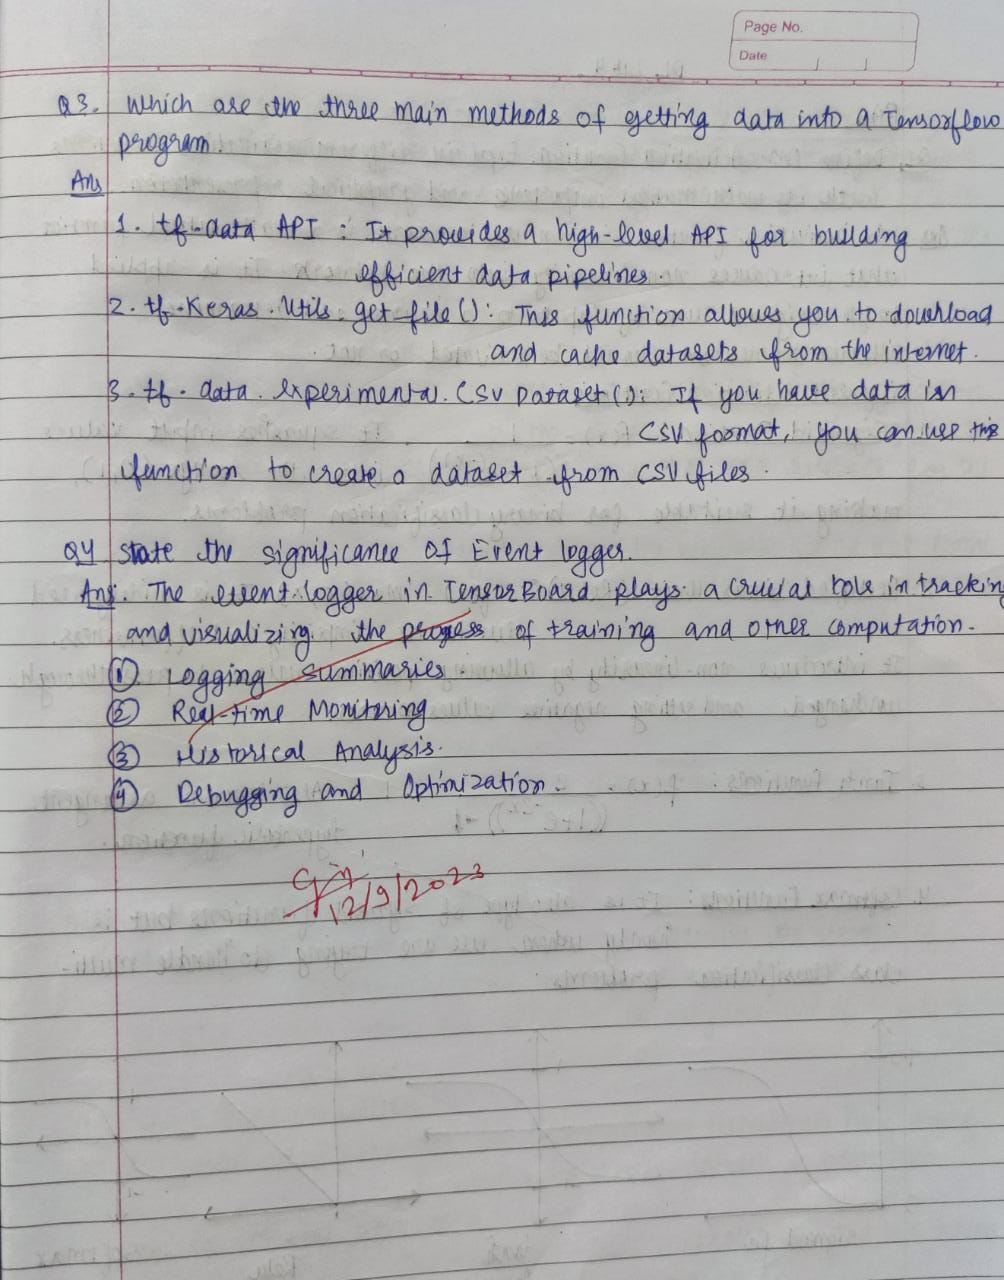 Page No.
Date
Q3. Which are the three main methods of getting data into a Tensorflow
program.
Ans
1. tf-data API : It provides a high-level API for building
efficient data pipelines.
2. tf-Keras. Utils. get-file() : This function allows you to download
and cache datasets from the internet.
3. tf. data. experimental. CSV Dataset(): If you have data in
CSV format, you can use this
function to create a dataset from CSV files.
Q4 State the significance of Event logger.
Ans. The event logger in TensorBoard plays a crucial role in trackin
and visualizing the progress of training and other computation.
① Logging Summaries.
② Real-time Monitoring
③ Historical Analysis.
④ Debugging and Optimization.
12/9/2023